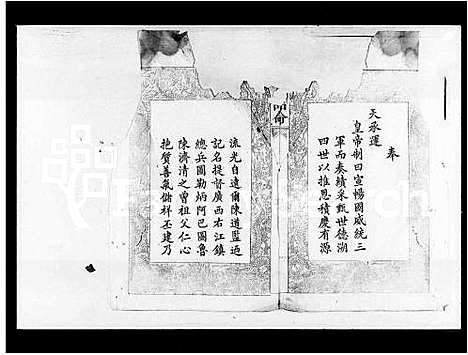 奉
天承運
皇帝制曰宣暢國威統三
軍而奏績采甄世德溯
四世以推恩積慶有源
誥命
流光自遠爾陳道監迺
記名提督廣西右江鎮
總兵圖勒炳阿巴圖魯
陳濟清之曾祖父仁心
抱質善氣儲祥丕建乃